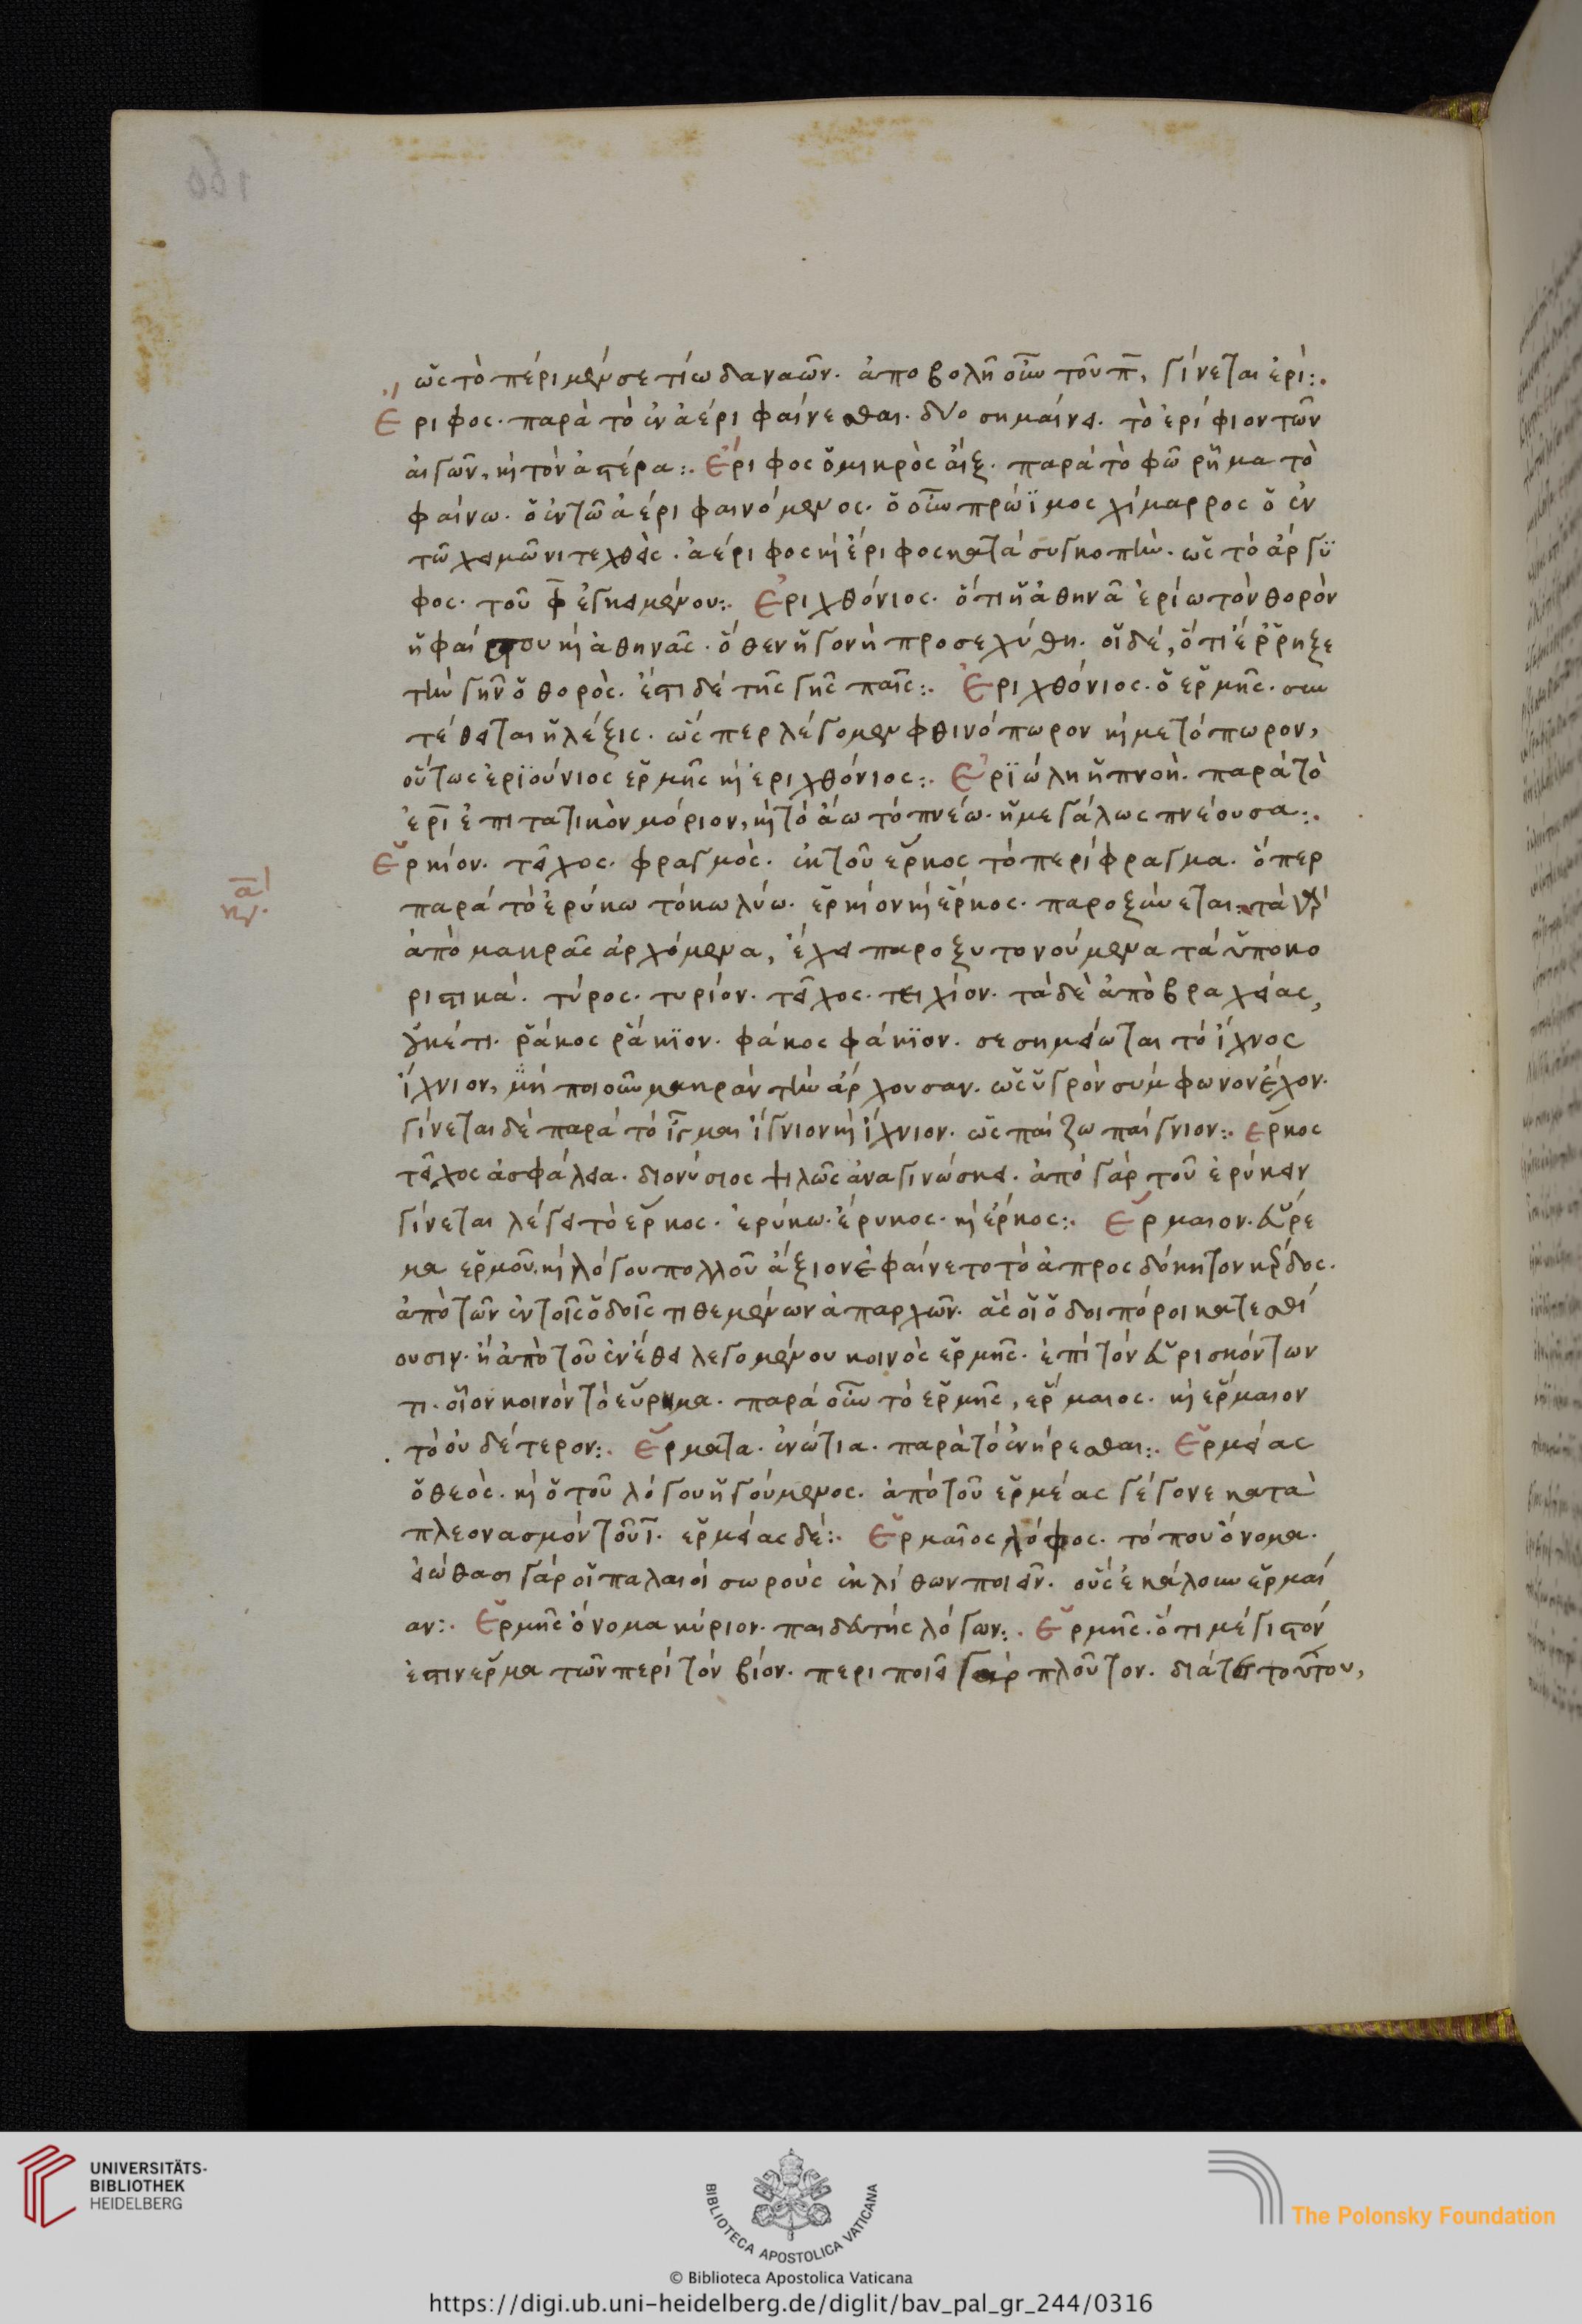 160
ὡς τὸ πέρι μὲν σε τίω δαναῶν. ἀποβολῆ οὖν τοῦ π, γίνεται ἐρί:.
Ἔριφος. παρὰ τὸ ἐν ἀέρι φαίνεσθαι. δύο σημαίνει. τὸ ἐρίφιον τῶν
αἰγῶν, κὶ τὸν ἀστέρα:. Ἔριφος ὁ μικρὸς ἀίξ. παρά τὸ φῶ ρῆμα τὸ
φαίνω. ὁ ἐν τῶ ἀέρι φαινόμενος. ὁ οὖν πρώϊμος χίμαρρος ὁ ἐν
τῶ χειμῶνι τεχθείς. ἀέριφος κὶ ἔριφος κατά συγκοπὴν. ὡς τὸ ἀργύ
φος. τοῦ φ ἐγκειμένου:. Ἐριχθόνιος. ὅτι ἡ ἀθηνᾶ ἐρίω τὸν θορὸν
ἡφαίστου κὶ ἀθηνᾶς. ὅθεν ἡ γονὴ προσεχύθη. οἱ δέ, ὅτι ἔρρηξε
τὴν γῆν ὁ θορὸς. ἔστι δέ τῆς γῆς παῖς:. Ἐριχθόνιος. ὁ ἑρμῆς. συν
τέθειται ἡ λέξις. ὥσπερ λέγομεν φθινόπωρον κὶ μετόπωρον,
οὕτως ἐρϊούνιος ἑρμῆς κὶ ἐριχθόνιος:. Ἐρϊώλη ἡ πνοὴ. παρά τὸ
ἐρῖ ἐπιτατικὸν μόριον, κὶ τό ἄω τό πνέω. ἡ μεγάλως πνέουσα:.
Ἑρκίον. τεῖχος. φραγμὸς. ἐκ τοῦ ἕρκος τό περίφραγμα. ὅπερ
παρά τὸ ἐρύκω τό κωλύω. ἑρκίον κὶ ἕρκος. παροξύνεται. τά
ἀπὸ μακρᾶς ἀρχόμενα, ἔχει παροξυτονούμενα τά ὑποκο
ριστικά. τύρος. τυρίον. τεῖχος. τειχίον. τὰ δὲ ἀπὸ βραχείας,
οὐκέτι. ῥάκος ῥάκϊον. φάκος φάκϊον. σεσημείωται τό ἴχνος
ἴχνιον, μή ποιοῦν μακράν τὴν ἄρχουσαν. ὡς ὑγρὸν σύμφωνον ἔχον.
γίνεται δέ παρά τό ἷγμαι ἴγνιον κὶ ἴχνιον. ὡς παίζω παίγνιον:. ἕρκος
τεῖχος ἀσφάλεια. διονύσιος ψιλῶς ἀναγινώσκει. ἀπό γάρ τοῦ ἐρύκειν
γίνεται λέγει τὸ ἕρκος. ἐρύκω. ἔρυκος. κὶ ἔρκος:. Ἕρμαιον. εὕρε
μα ἑρμοῦ. κὶ λόγου πολλοῦ ἄξιον ἐφαίνετο τὸ ἀπροσδόκητον κέρδος.
ἀπὸ τῶν ἐν τοῖς ὁδοῖς τιθεμένων ἀπαρχῶν. ἃς οἱ ὁδοιπόροι κατεσθί
ουσιν. ἢ ἀπὸ τοῦ ἐν ἔθει λεγομένου κοινὸς ἑρμῆς. ἐπί τόν εὑρισκόντων
τι. οἷον κοινόν τὸ εὕρημα. παρά οὖν τὸ ἑρμῆς, ἕρμαιος. κὶ ἕρμαιον
τό οὐδέτερον:. Ἕρματα. ἐνώτια. παρὰ τό ἐνήρεσθαι:. Ἑρμείας
ὁ θεὸς. κὶ ὁ τοῦ λόγου ἡγούμενος. ἀπό τοῦ ἑρμέας γέγονε κατὰ
πλεονασμόν τοῦ ι. ἑρμείας δέ:. Ἑρμαῖος λόφος. τόπου ὄνομα.
εἰώθασι γάρ οἱ παλαιοί σωροὺς ἐκ λίθων ποιεῖν. οὓς ἐκάλουν ἑρμαί
αν:. Ἑρμῆς ὄνομα κύριον. παιδευτής λόγων:. Ἑρμῆς. ὅτι μέγιστόν
ἐστιν ἕρμα τῶν περί τόν βίον. περιποιεῖ γάρ πλοῦτον. διά τοῦτο
UNIVERSITÄTS-
BIBLIOTHEK
HEIDELBERG
BIBLIOTECA APOSTOLICA VATICANA
The Polonsky Foundation
© Biblioteca Apostolica Vaticana
https://digi.ub.uni-heidelberg.de/diglit/bav_pal_gr_244/0316